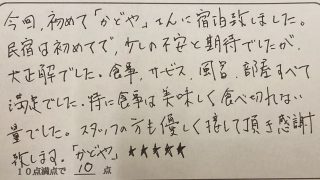 今回、初めて「かどや」さんに宿泊致しました。
民宿は初めてで、少しの不安と期待でしたが、
大正解でした。食事、サービス、風呂、部屋すべて
満足でした。特に食事は美味しく食べ切れない
量でした。スタッフの方も優しく接して頂き感謝
致します。「かどや」★★★★★
10点満点で 10 点